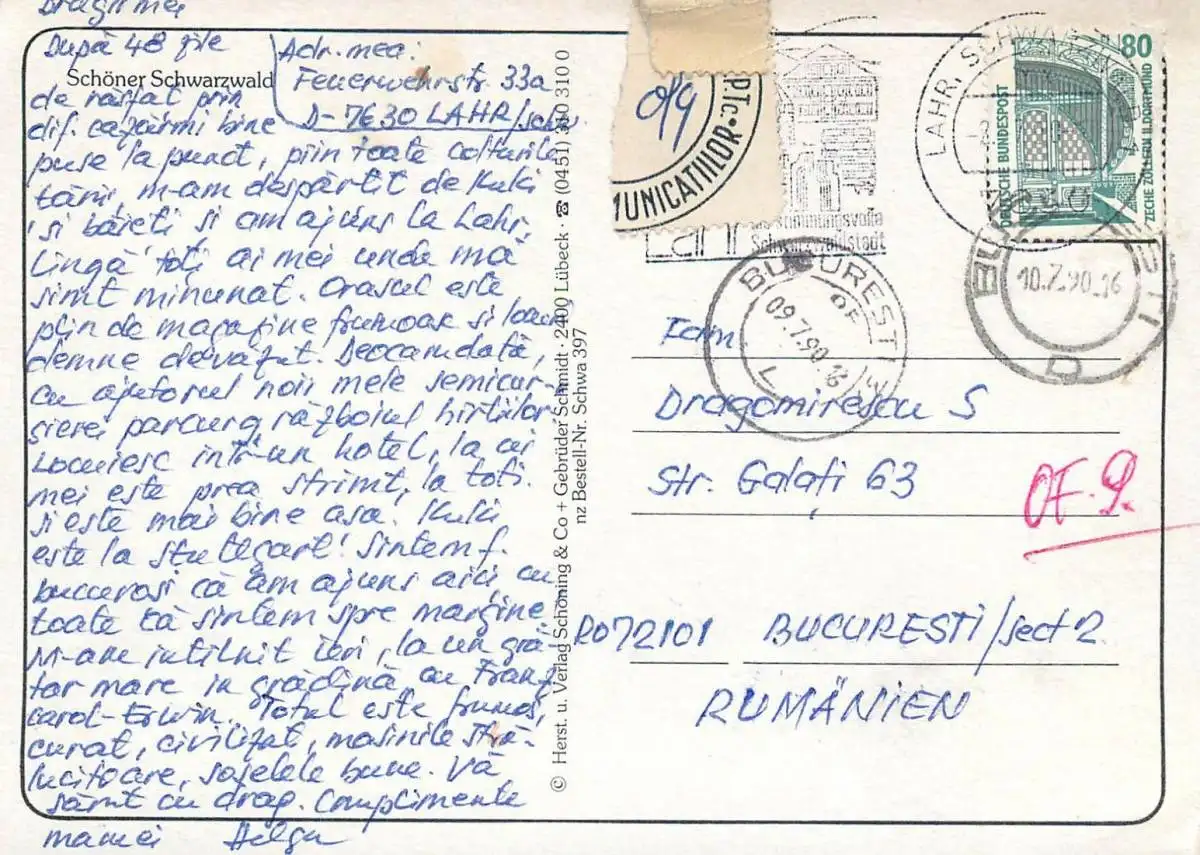 Dragii mei
După 48 zile
Schöner Schwarzwald
de răsfăt prin
dif. cazărmi bine
puse la punct, prin toate colturile
tării, m-am despărtit de Kuki
si băieti si am ajuns la Lahr,
lîngă toti ai mei unde mă
simt minunat. Orasul este
plin de magazine frumoase si
demne de văzut. Deocamdată,
cu ajutorul noii mele semicur-
sierei parcurg războiul hîrtiilor
Locuiesc într-un hotel, la ai
mei este prea strîmt, la toti.
si este mai bine asa. Kuki
este la Stuttgart! Sîntem f.
bucurosi că am ajuns aici cu
toate că sîntem spre margine.
M-am întîlnit ieri, la un gră-
tar mare în grădină cu Franz
Carol-Erwin. Totul este frumos,
curat, civilizat, masinile stră-
lucitoare, soselele bune. Vă
sărut cu drag. Complimente
mamei Helga
Adr. mea:
Feuerwehrstr. 33a
D-7630 LAHR/schw
© Herst. u. Verlag Schöning & Co + Gebrüder Schmidt · 2400 Lübeck · ☎ (0451) 310 310 0
nz Bestell-Nr. Schwa 397
P.Tc.
MUNICATIILOR
Lahr
stimmungsvolle
Schwarzwaldstadt
LAHR, SCHWARZW
80
DEUTSCHE BUNDESPOST
ZECHE ZOLLERN II, DORTMUND
BUCURESTI
OF
09.7.90.16
L
10.7.90.16
D
Fam
Dragomirescu S
Str. Galați 63
OF. 9.
RO72101 BUCURESTI/sect 2.
RUMÄNIEN